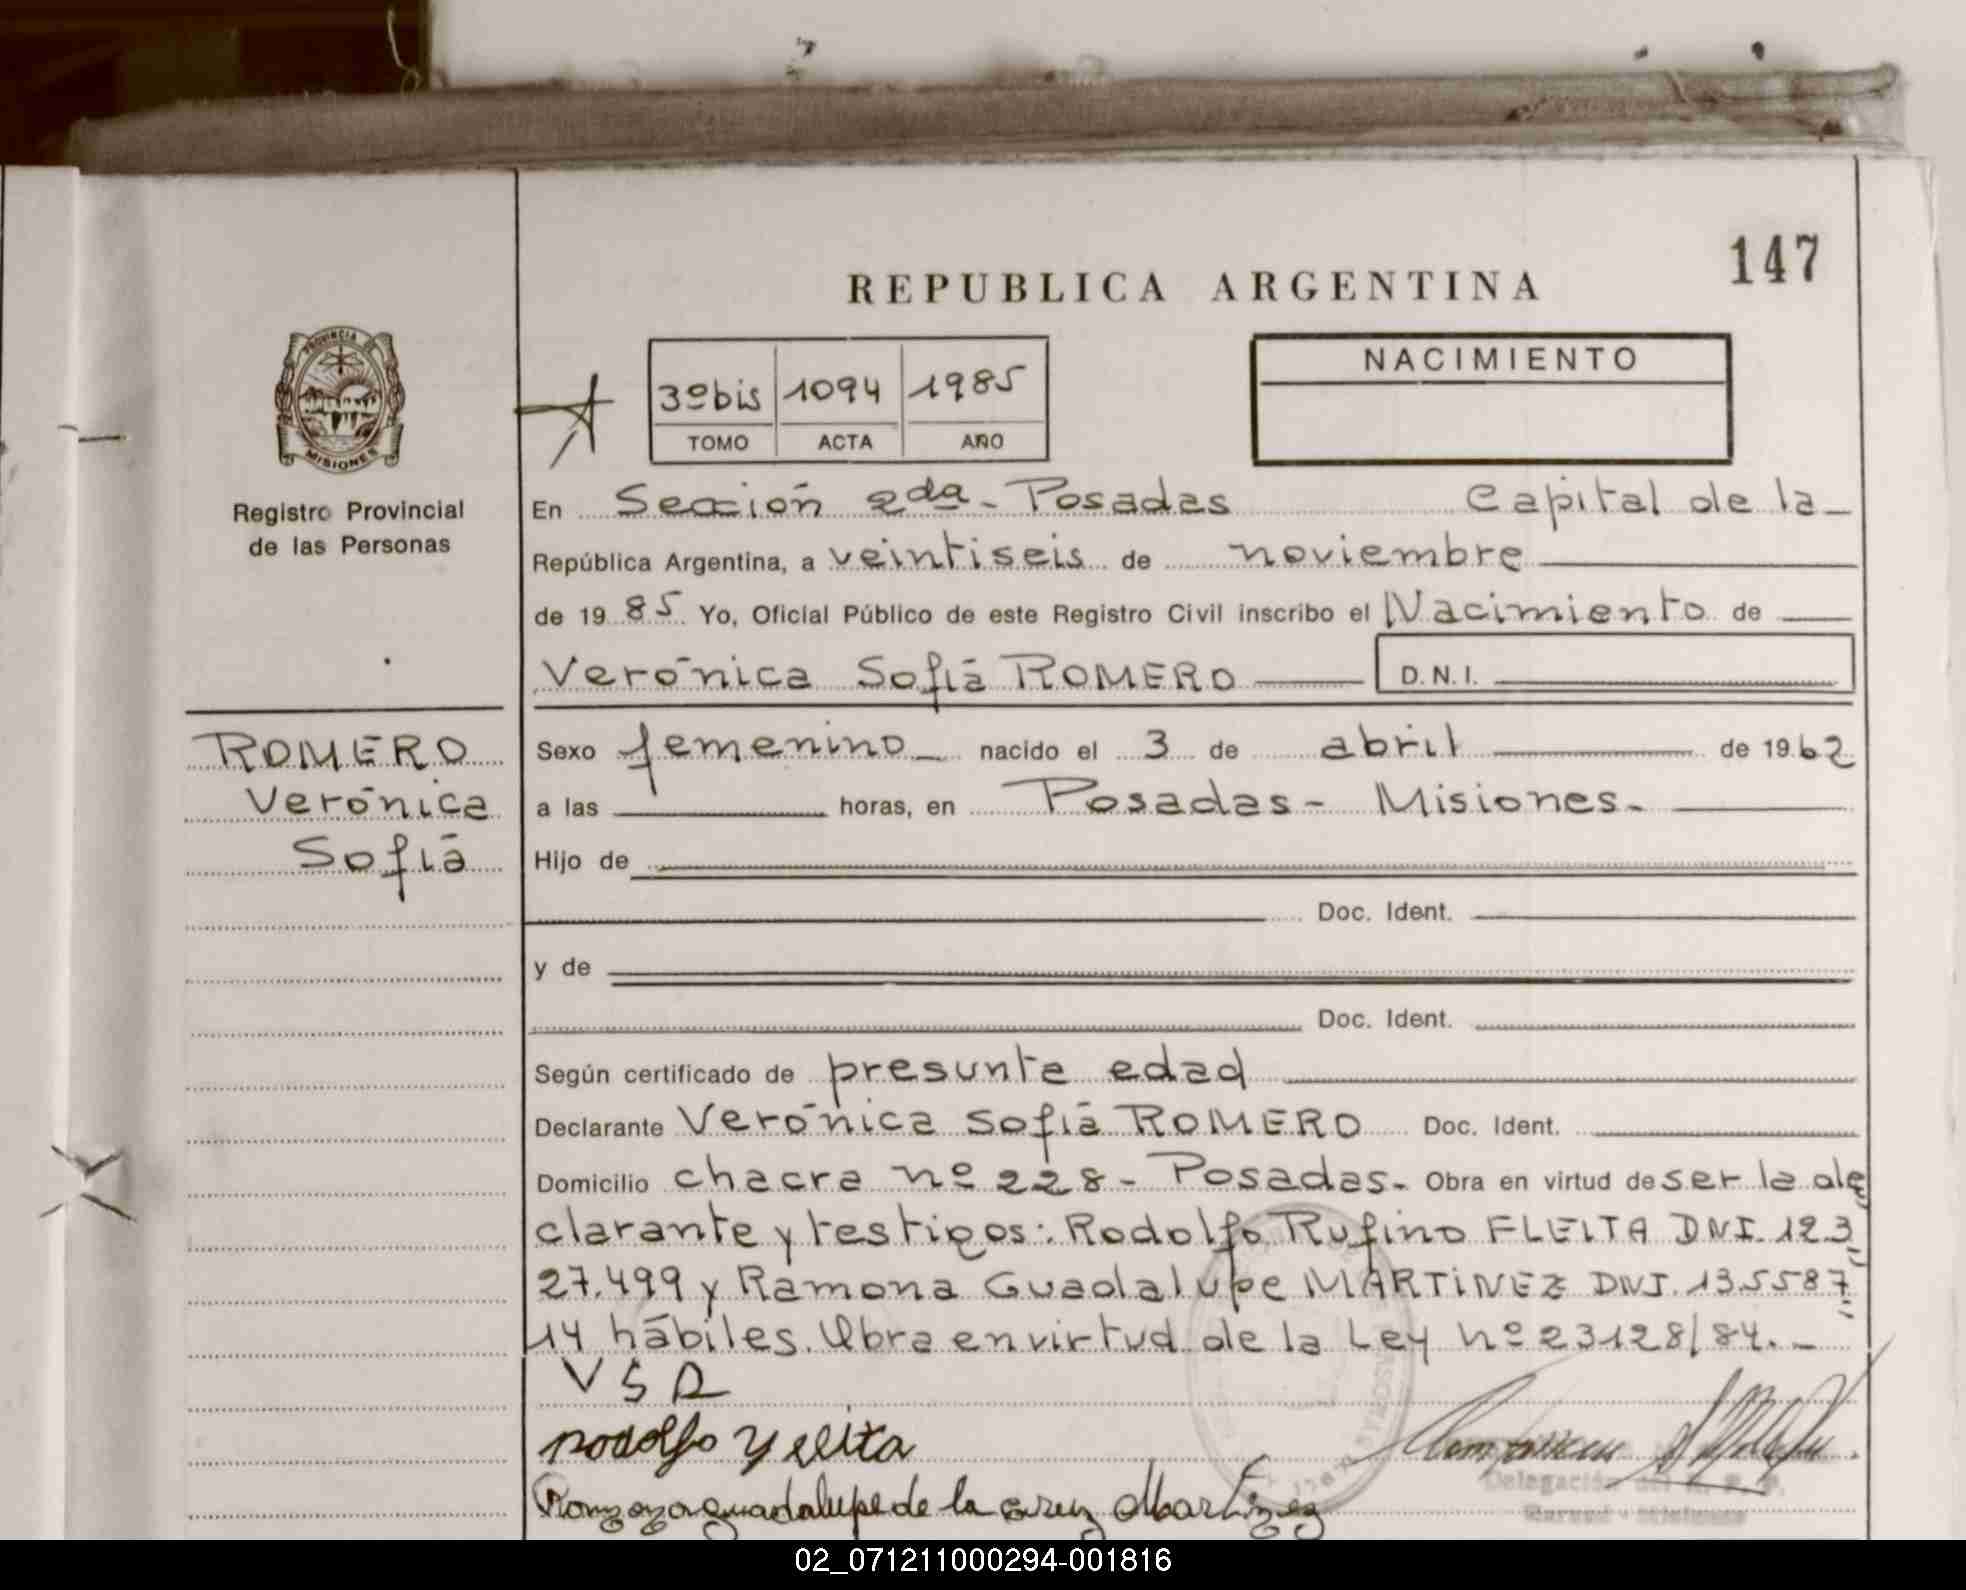 147
REPUBLICA ARGENTINA
PROVINCIA DE
MISIONES
Registro Provincial
de las Personas
3º bis 1094 1985
TOMO ACTA AÑO
NACIMIENTO
En Sección 2da - Posadas Capital de la
República Argentina, a veintiseis de noviembre
de 19 85 Yo, Oficial Público de este Registro Civil inscribo el Nacimiento de
Verónica Sofiá ROMERO D.N.I.
ROMERO
Verónica
Sofiá
Sexo femenino nacido el 3 de abril de 19 62
a las horas, en Posadas - Misiones.
Hijo de
Doc. Ident.
y de
Doc. Ident.
Según certificado de presunta edad
Declarante Verónica Sofiá ROMERO Doc. Ident.
Domicilio chacra nº 228 - Posadas. Obra en virtud de ser la de
clarante y testigos: Rodolfo Rufino FLEITA DNI. 12.3
27.499 y Ramona Guadalupe MARTINEZ DNI. 13.5587
14 hábiles. Obra en virtud de la Ley nº 23128/84. -
V S R
Rodolfo
Ramona guadalupe de la cruz Martinez
Delegación del R. P. P.
02_071211000294-001816